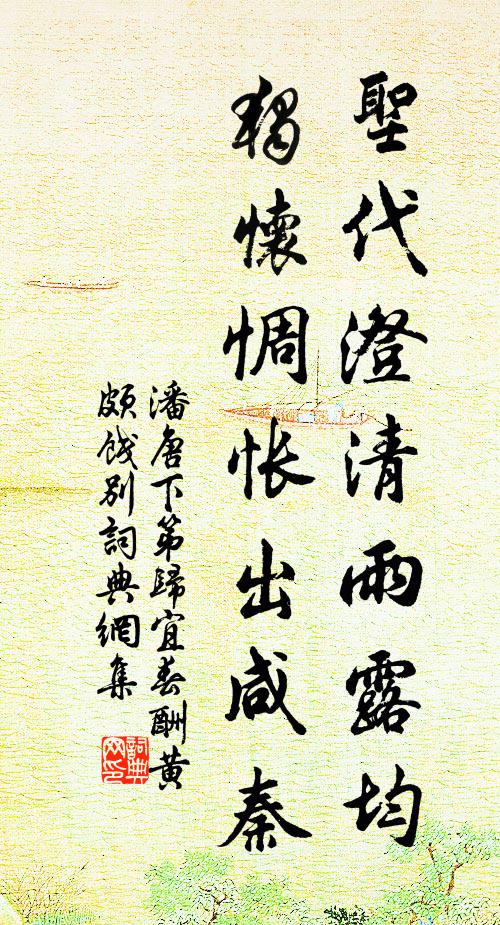 聖代澄清雨露均
獨懷惆悵出咸秦
潘唐下第歸宜春酬黃
頗餞別詞典網集